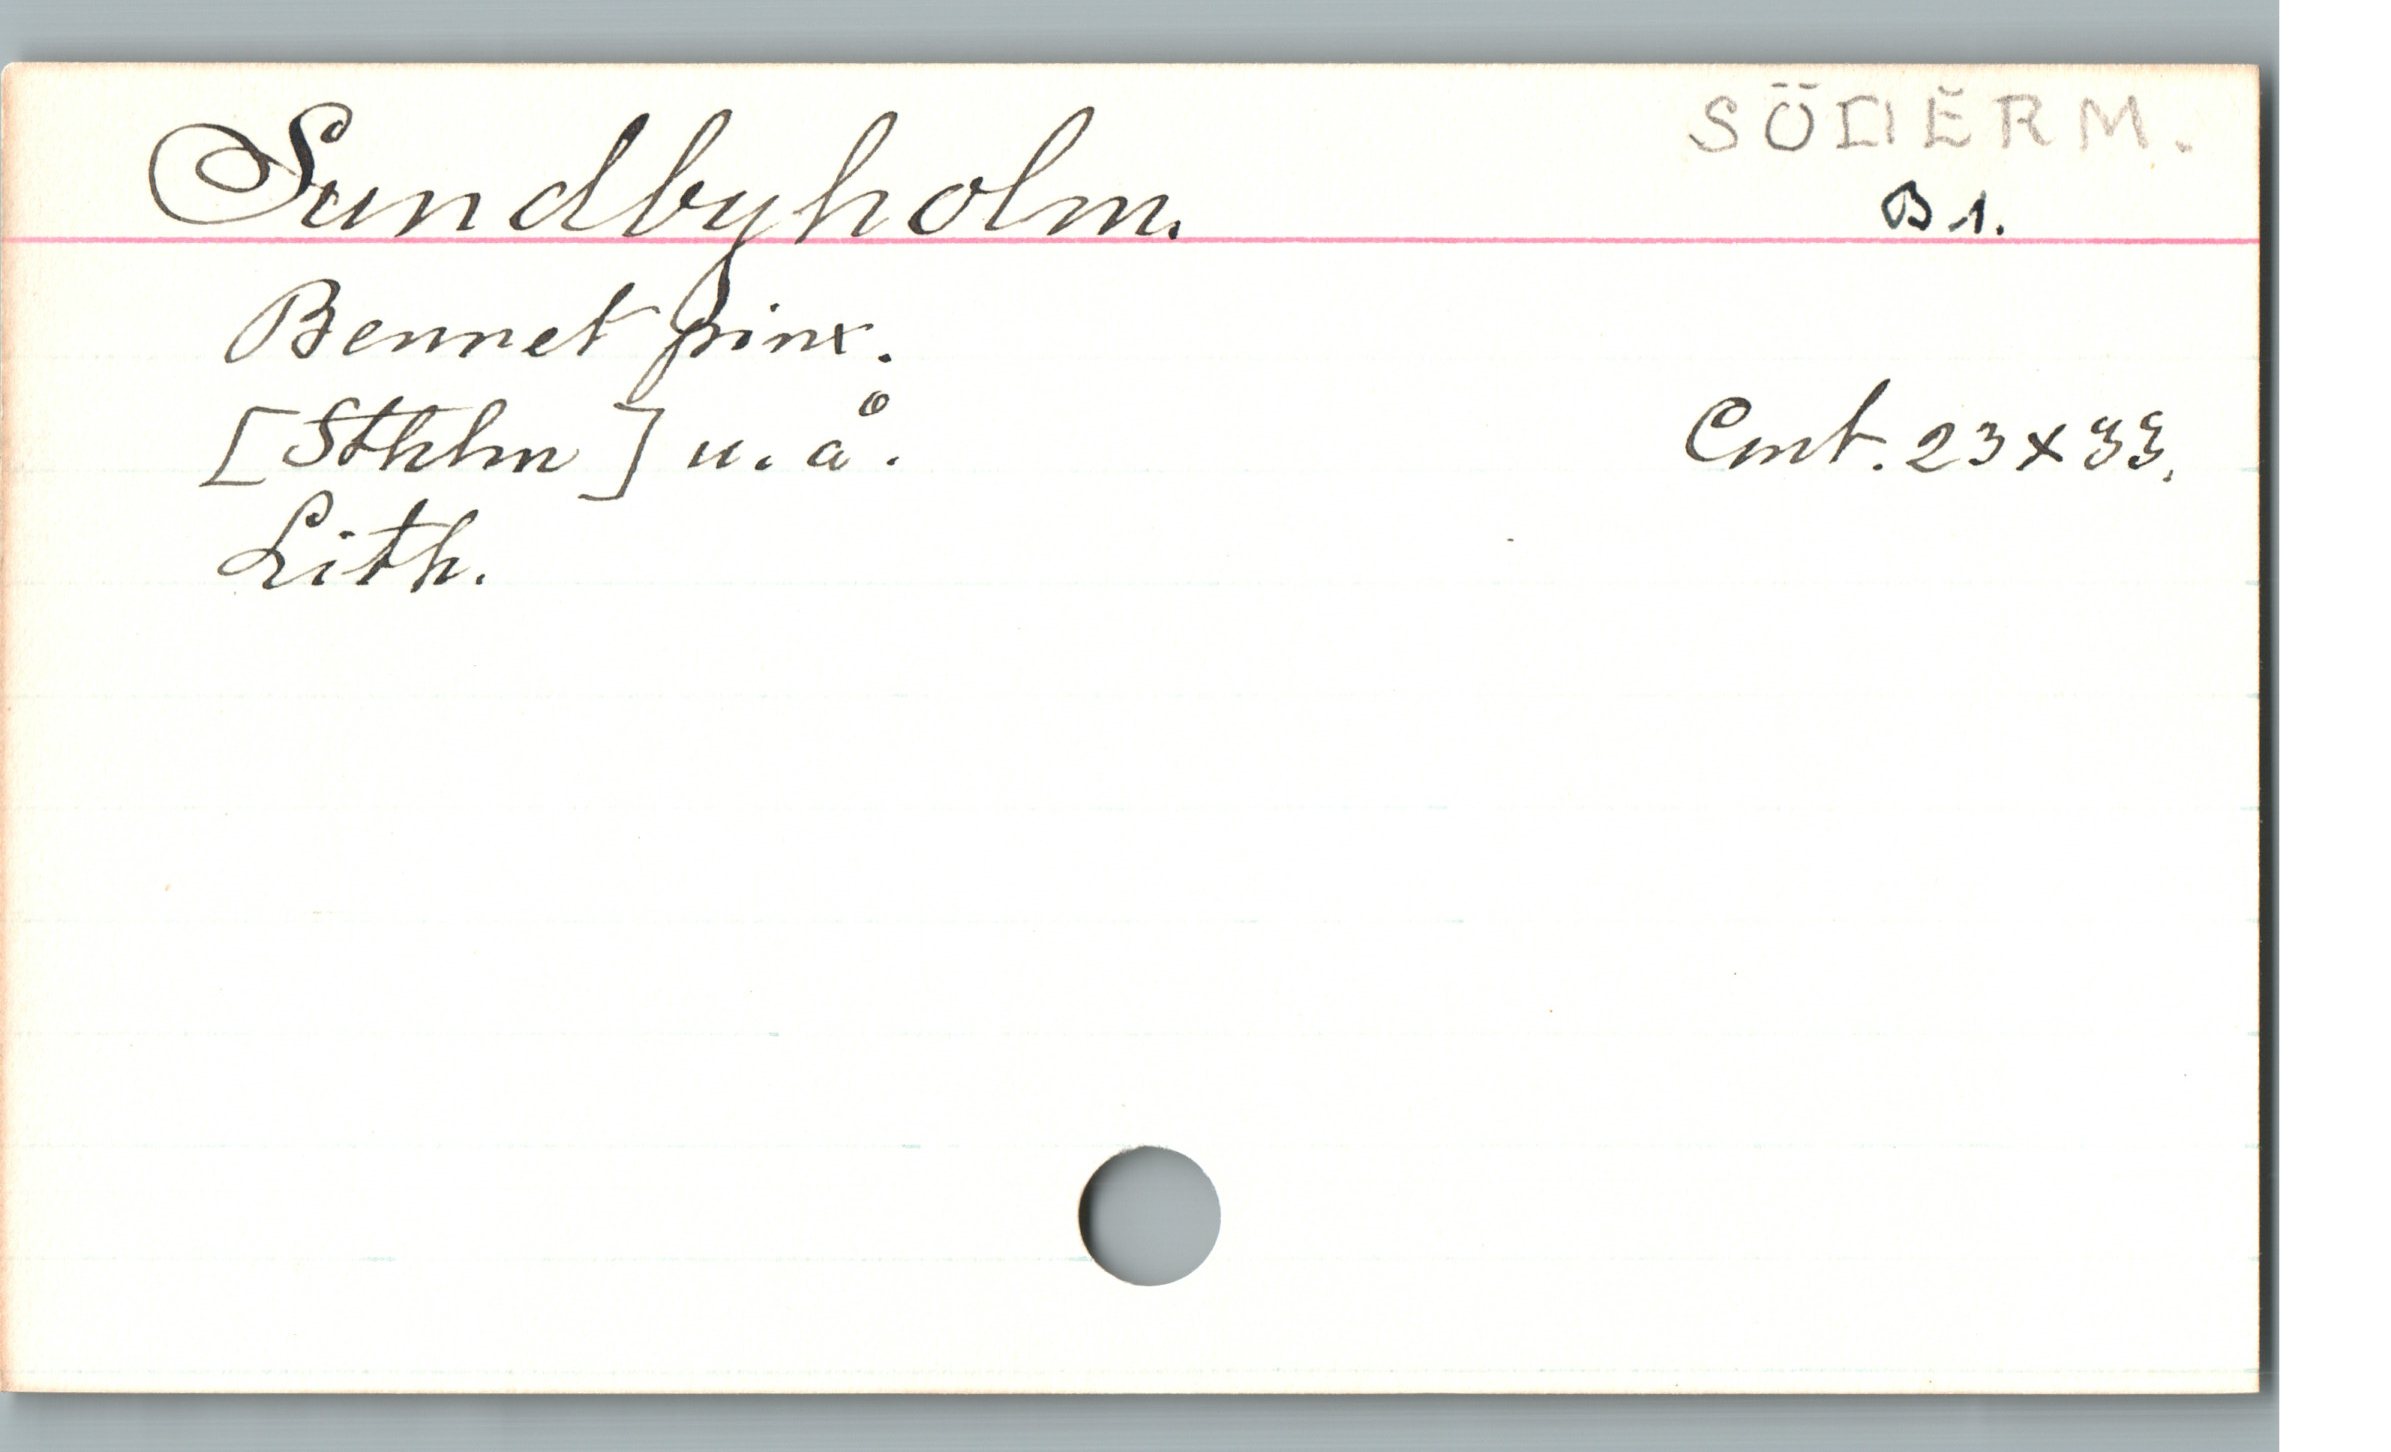 Sundbyholm.
SÖDERM.
B 1.
Bennet pinx.
[Sthlm] u. å.
Cmt. 23 x 33.
Lith.